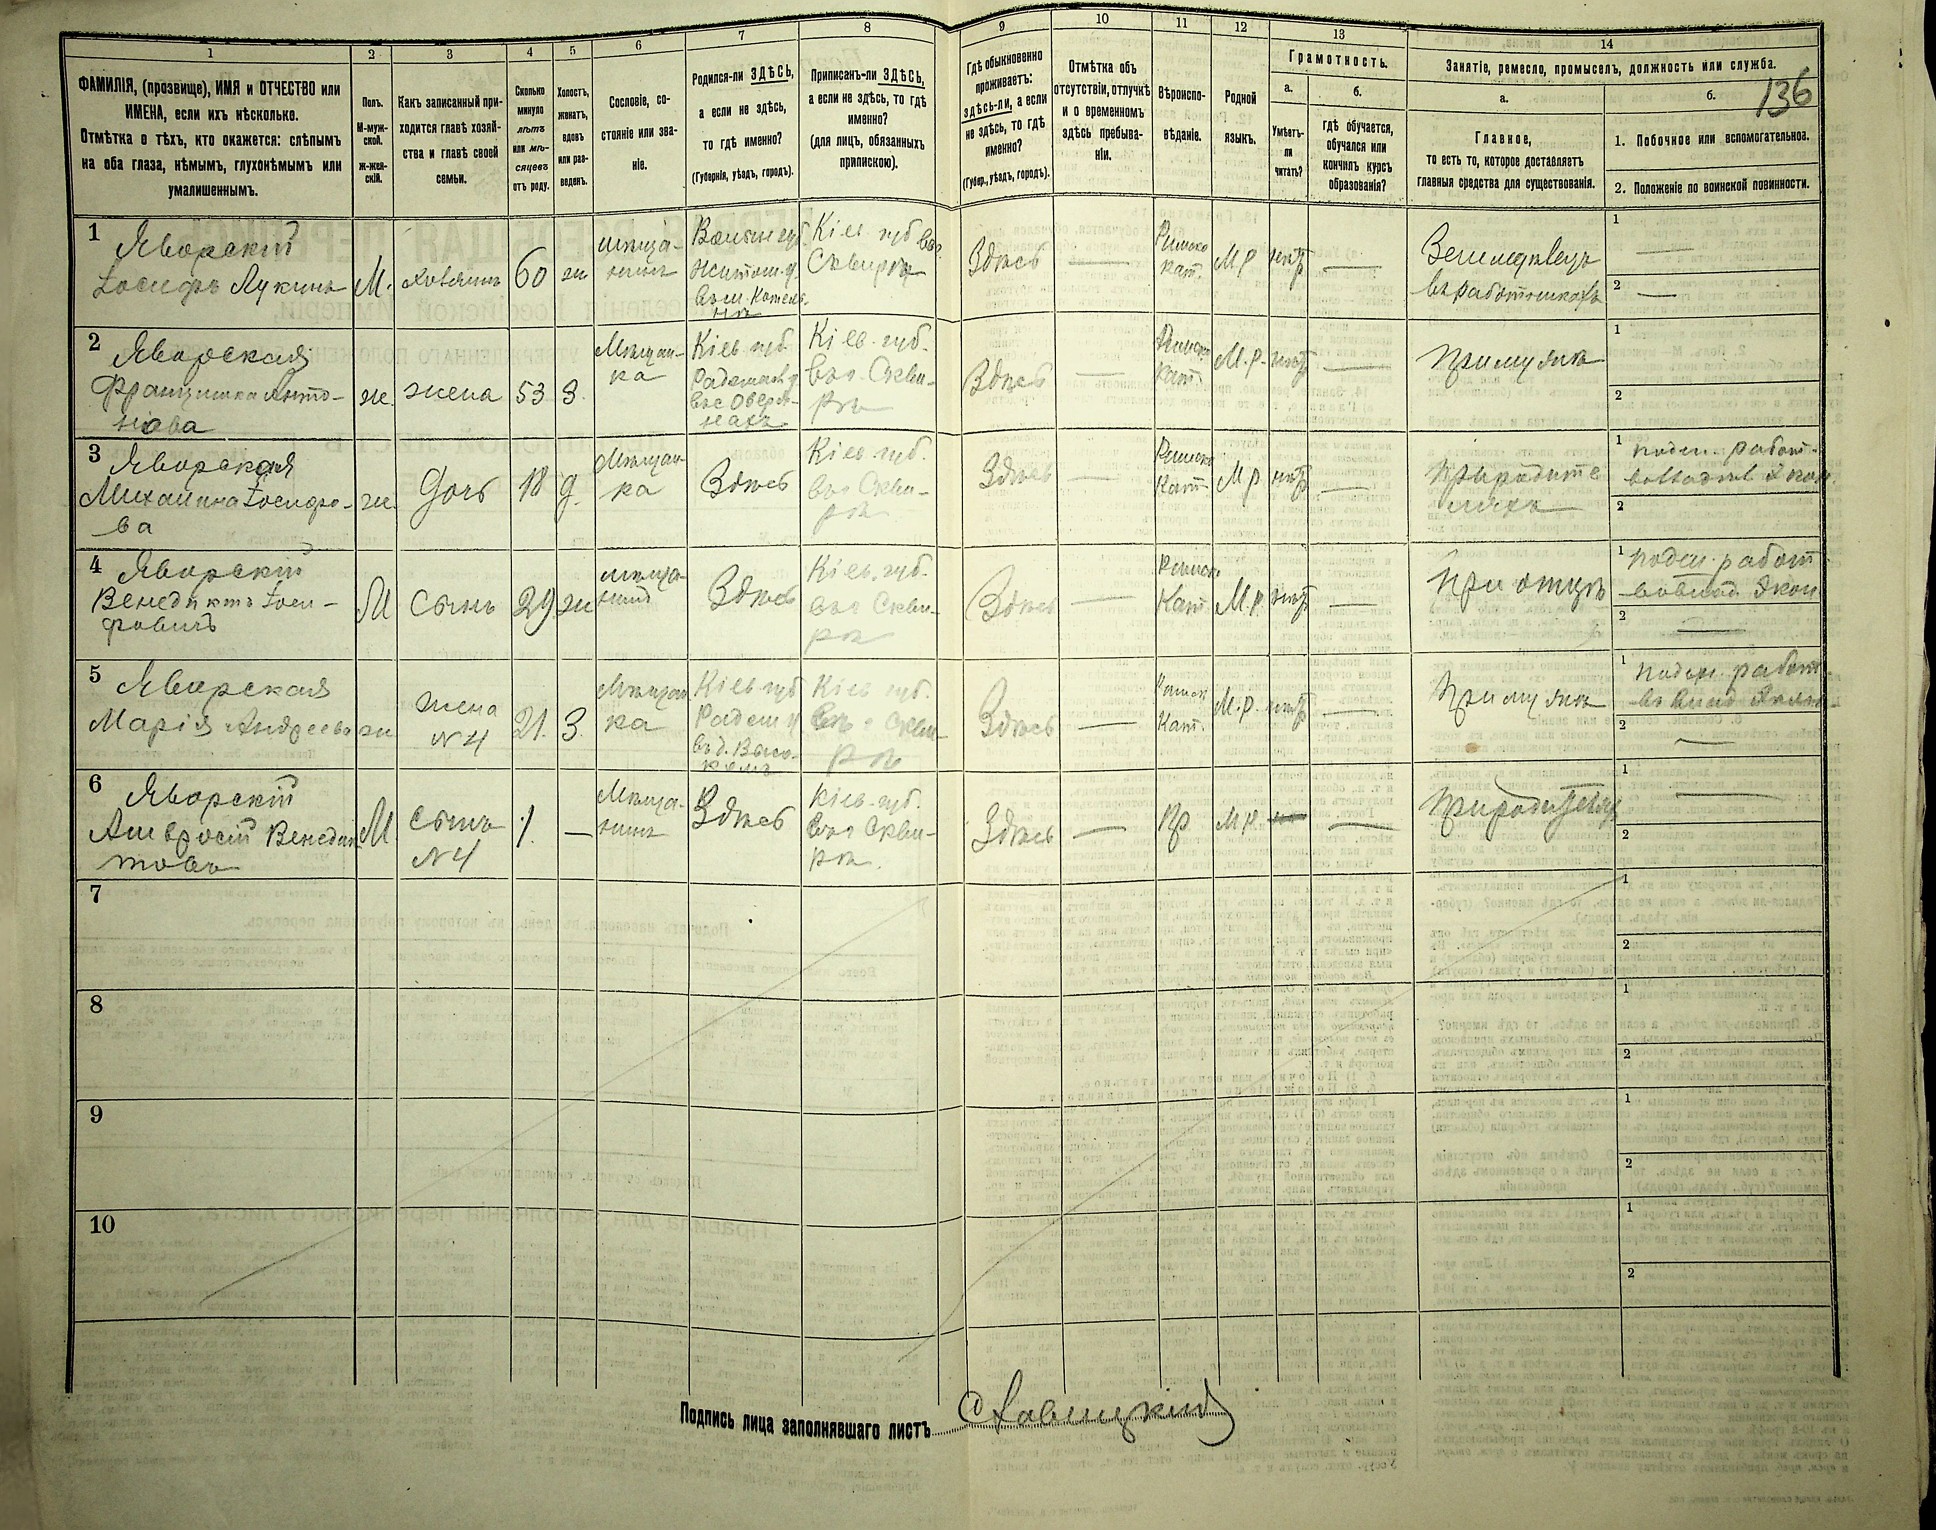 1 2 3 4 5 6 7 8 9 10 11 12 13 14
136
ФАМИЛІЯ, (прозвище), ИМЯ и ОТЧЕСТВО или
ИМЕНА, если ихъ нѣсколько.
Отмѣтка о тѣхъ, кто окажется: слѣпымъ
на оба глаза, нѣмымъ, глухонѣмымъ или
умалишеннымъ.
Полъ.
М-муж-
ской.
ж-жен-
скій.
Какъ записанный при-
ходится главѣ хозяй-
ства и главѣ своей
семьи.
Сколько
минуло
лѣтъ
или мѣ-
сяцевъ
отъ роду.
Холостъ,
женатъ,
вдовъ
или раз-
веденъ.
Сословіе, со-
стояніе или зва-
ніе.
Родился-ли ЗДѢСЬ,
а если не здѣсь,
то гдѣ именно?
(Губернія, уѣздъ, городъ).
Приписанъ-ли ЗДѢСЬ,
а если не здѣсь, то гдѣ
именно?
(для лицъ, обязанныхъ
припискою).
Гдѣ обыкновенно
проживаетъ:
здѣсь-ли, а если
не здѣсь, то гдѣ
именно?
(Губер., уѣздъ, городъ).
Отмѣтка объ
отсутствіи, отлучкѣ
и о временномъ
здѣсь пребыва-
ніи.
Вѣроиспо-
вѣданіе.
Родной
языкъ.
Грамотность.
а.
Умѣетъ-
ли
читать?
б.
гдѣ обучается,
обучался или
кончилъ курсъ
образованія?
Занятіе, ремесло, промыселъ, должность или служба.
а.
Главное,
то есть то, которое доставляетъ
главныя средства для существованія.
б.
1. Побочное или вспомогательное.
2. Положеніе по воинской повинности.
1 Яворскій
Іосифъ Лукинъ
М.
хозяинъ
60
ж
мѣща-
нинъ
Волын губ.
Житом. у.
Кіев губ
Сквирѣ
Здѣсь
—
Римско
кат.
М.р
нѣтъ
—
Земледѣлецъ
въ работникахъ
1 —
2 —
2 Яворская
Францишка Анто-
нова
ж.
жена
53
З.
Мѣщан-
ка
Кіев губ.
Радомыс у.
Кіев. губ.
въ г. Скви-
рѣ
Здѣсь
—
Римско
кат.
М.р.
нѣтъ
—
При мужѣ
1
2
3 Яворская
Михалина Іосифо-
ва
ж.
Дочь
18
д.
Мѣщан-
ка
Здѣсь
Кіев. губ.
въ г Скви-
рѣ
Здѣсь
—
Римско
Кат.
М.р.
нѣтъ
—
При родите
ляхъ
1 поден. работ.
2
4 Яворскій
Венедиктъ Іоси-
фовичъ
М
Сынъ
29
ж
мѣща-
нинъ
Здѣсь
Кіев. губ.
въ г Скви-
рѣ
Здѣсь
—
Римско
Кат.
М.р.
нѣтъ
—
При отцѣ
1 поден. работ.
2 —
5 Яворская
Марія Андреева
ж
жена
№4
21.
З.
Мѣщан
ка
Кіев губ
Радом у.
Кіев губ.
въ г Скви-
рѣ
Здѣсь
—
Римск
Кат.
М.р.
нѣтъ
—
При мужѣ
1 поден. работ.
2 —
6 Яворскій
Амвросій Венедик
товъ
М
Сынъ
№4
1.
—
Мѣща-
нинъ
Здѣсь
Кіев. губ.
въ г Скви-
рѣ.
Здѣсь
—
М.р.
—
При родителях
1 —
2
7
1
2
8
1
2
9
1
2
10
1
2
Подпись лица заполнявшаго листъ